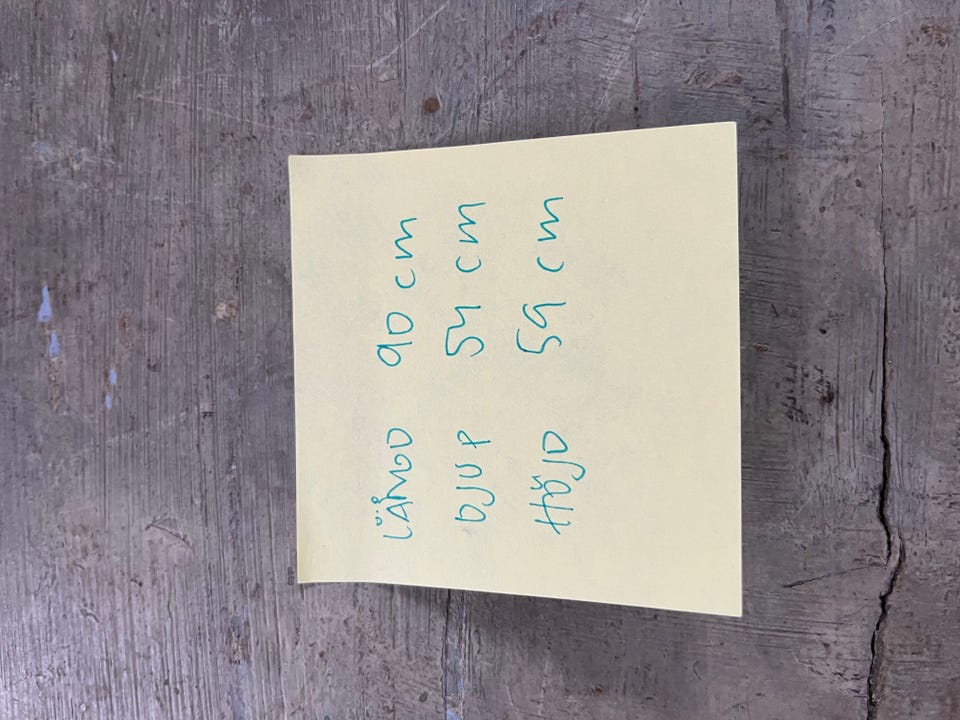 LÄNGD 90 cm
DJUP 54 cm
HÖJD 59 cm